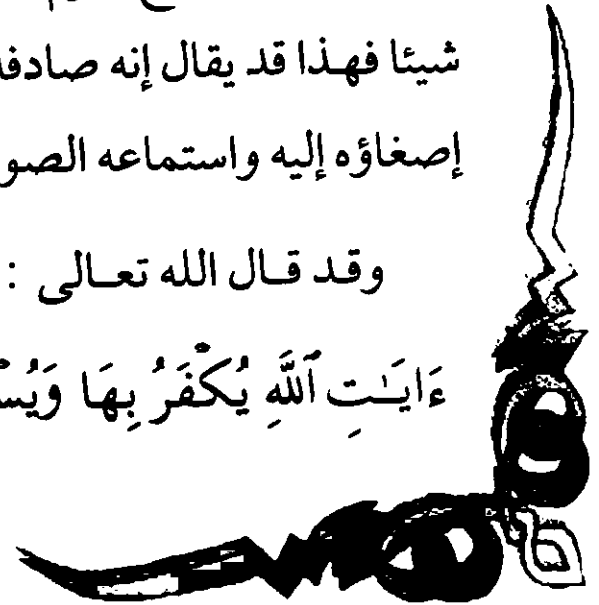 شيئا فهذا قد يقال إنه
إصغاؤه إليه واستماعه
وقد قال الله تعالى :
ءَايَـٰتِ ٱللَّهِ يُكۡفَرُ بِهَا